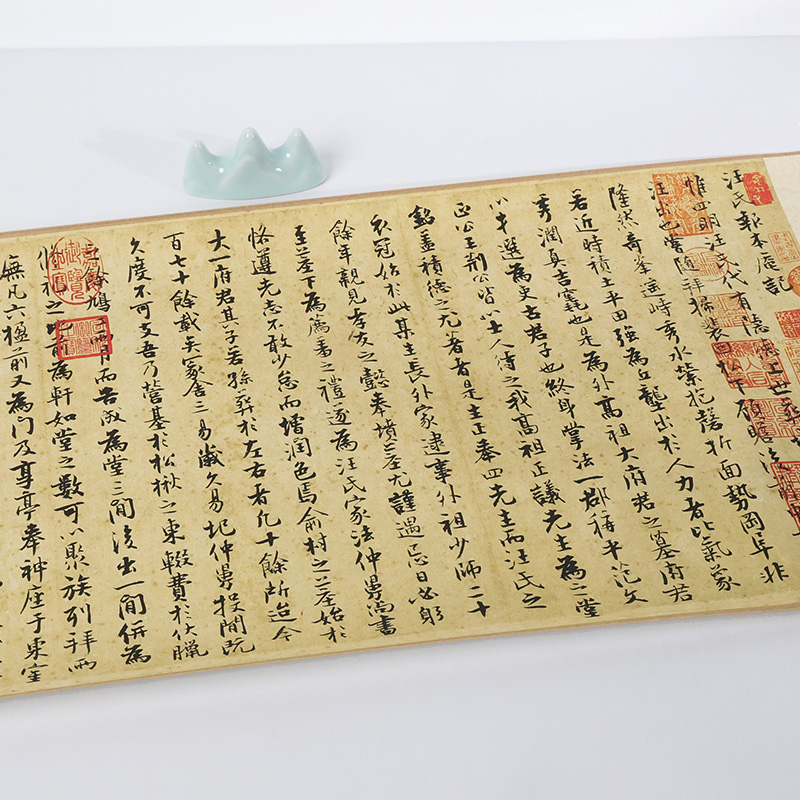 汪氏報本庵記
惟四明汪氏代有隱德上世
汪出也嘗隨拜掃裴回松下顧瞻後
隆然奇峯遥峙秀水縈抱磬折面勢岡阜非
若近時積土平田強為丘壟出於人力者比氣象
秀潤真吉竁也是為外高祖大府君之墓府君
以才選為吏古君子也終身掌法一郡稱平范文
正公王荊公皆以士人待之我高祖正議先生為之堂
銘蓋積德之尤著者是生正奉四先生而汪氏之
衣冠始於此某生長外家逮事外祖少師二十
餘年親見孝友之懿奉墳墓尤謹遇忌日必躬
至墓下為薦羞之禮遂為汪氏家法仲舅尚書
恪遵先志不敢少怠而增潤色焉俞村之墓始於
大一府君其子若孫葬於左右者凡十餘所迨今
百七十餘載矣冢舍三易歲久易圮仲舅投閒既
久度不可支吾乃營基於松楸之東輟費於伏臘
之餘鳩兩月而告成為堂三間後出一間併為
修祀之地前為軒如堂之數可以聚族列拜兩
無凡六楹前又為門及享亭奉神座于東室